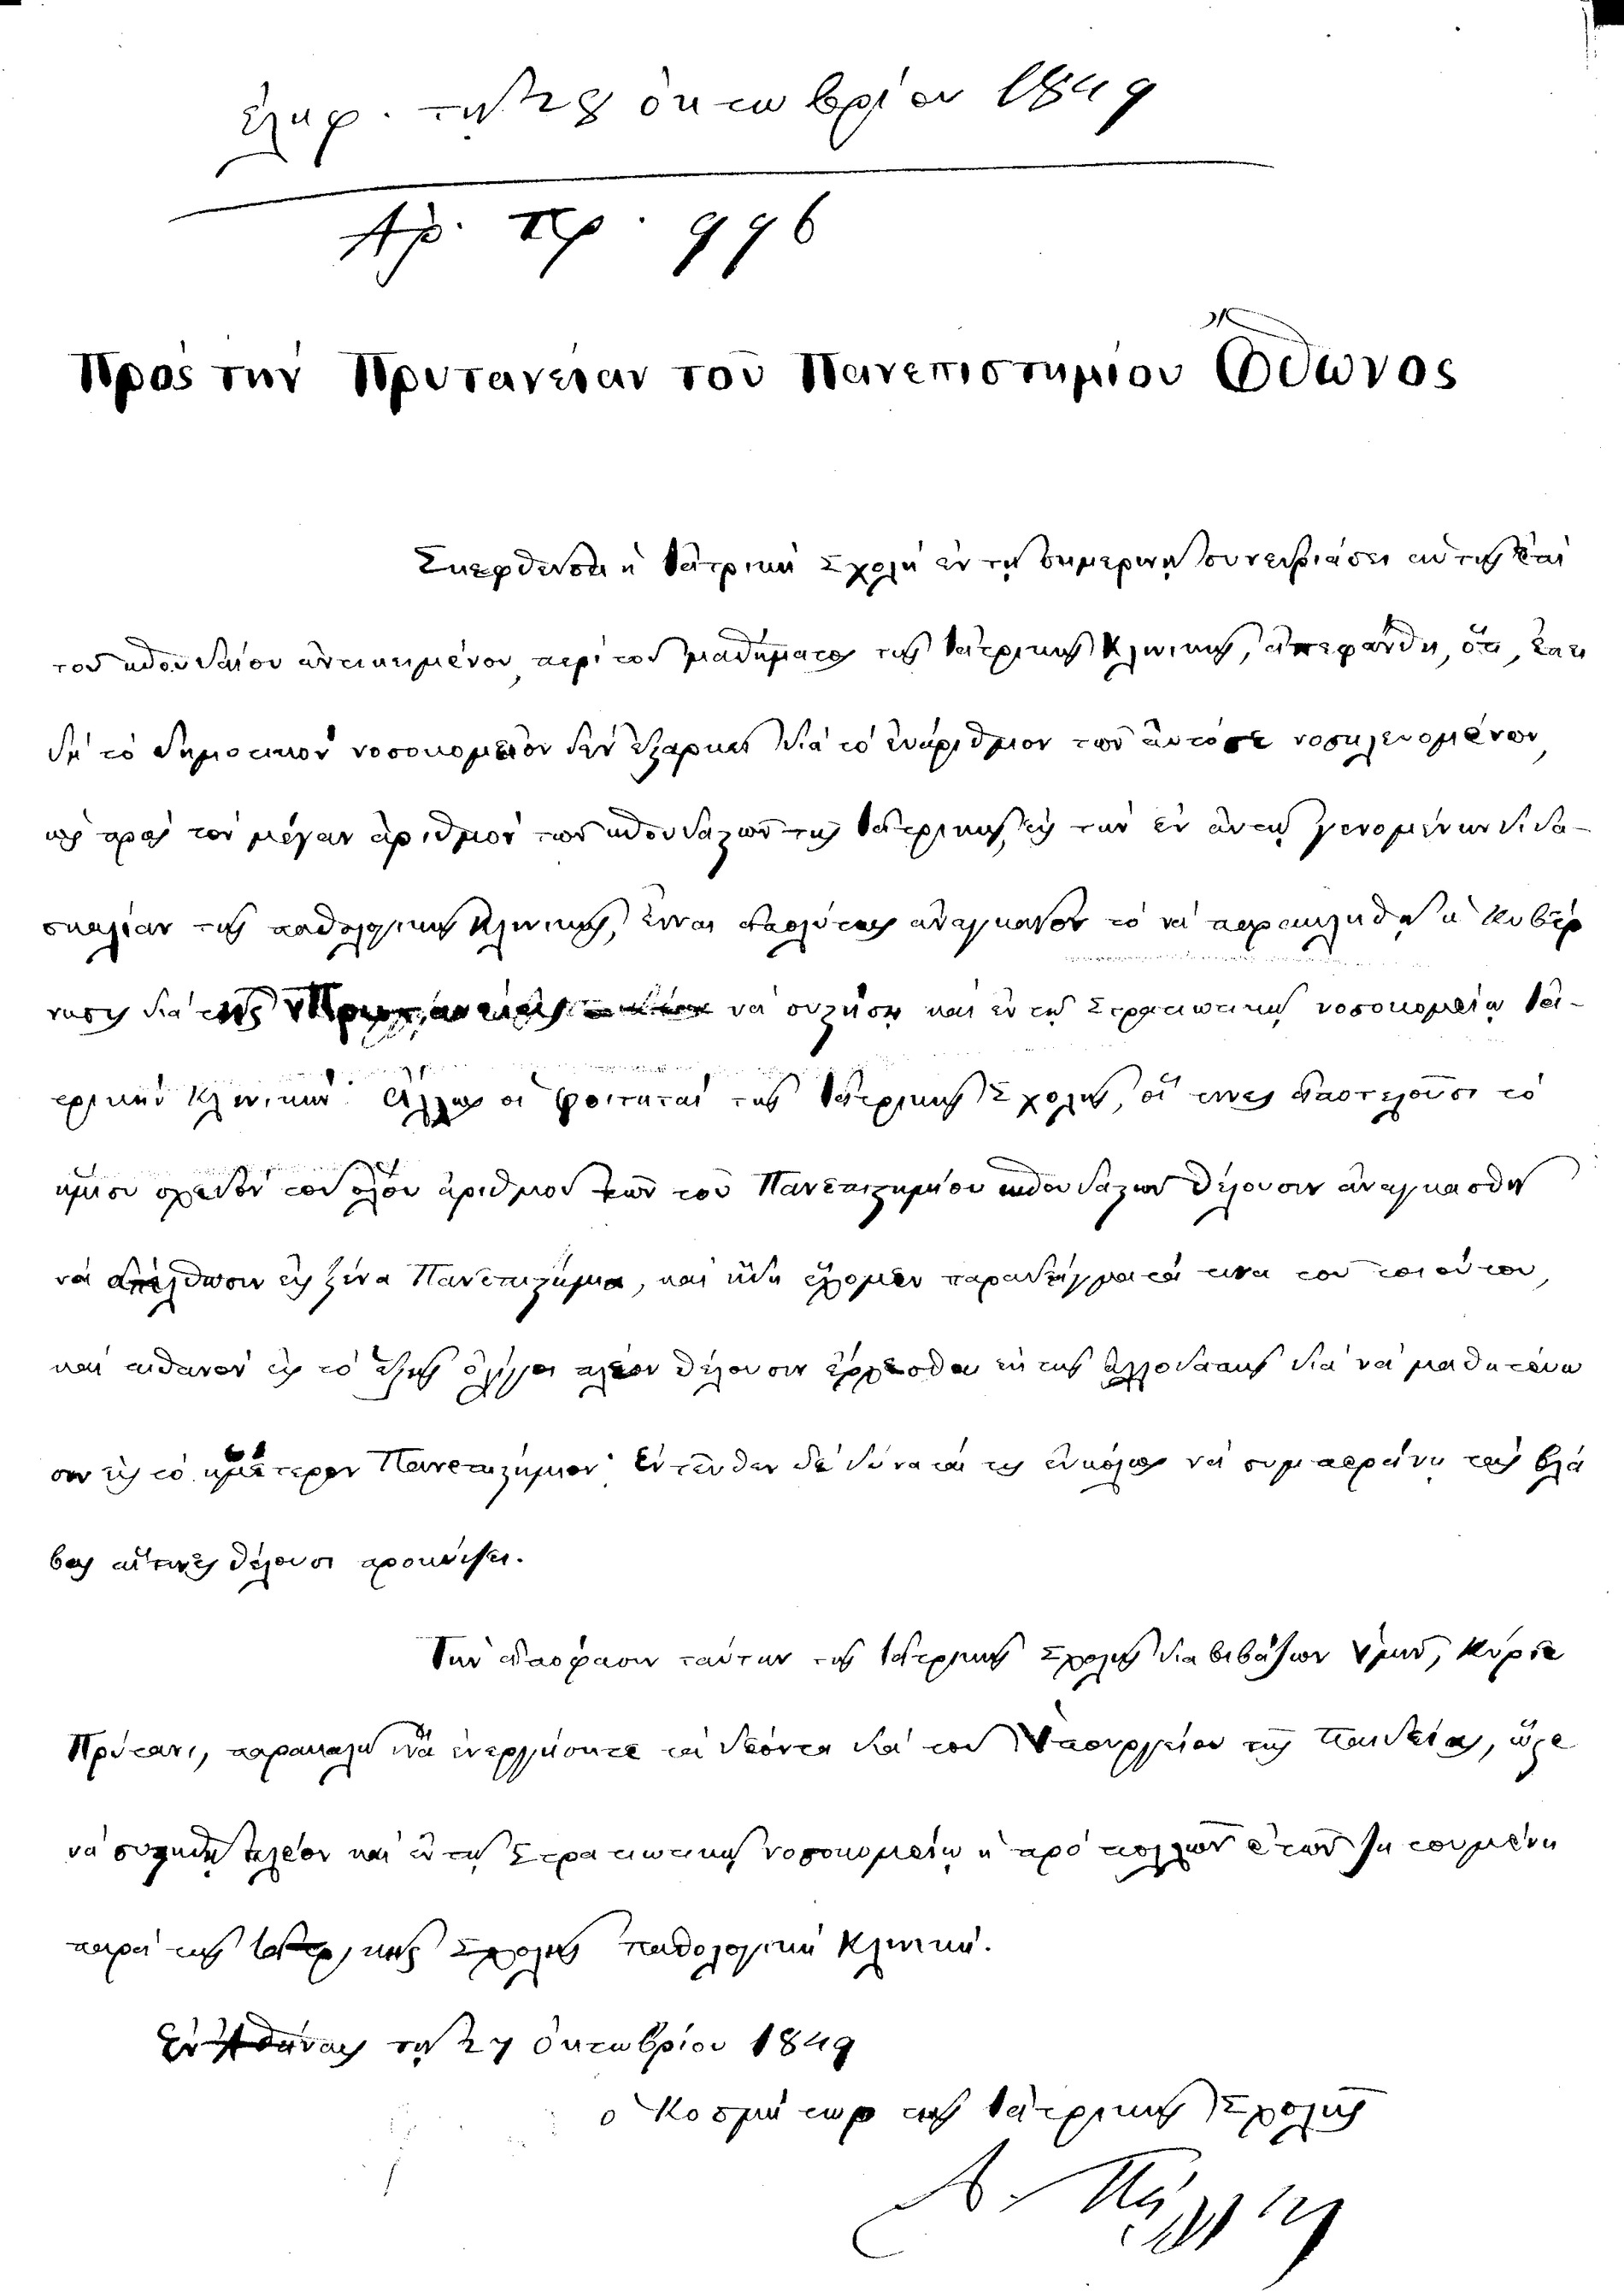 ἐλήφ. τῇ 28 ὀκτωβρίου 1849
Ἀρ. πρ. 996
Πρὸς τὴν Πρυτανείαν τοῦ Πανεπιστημίου Ὄθωνος
Σκεφθεῖσα ἡ Ἰατρικὴ Σχολὴ ἐν τῇ σημερινῇ συνεδριάσει αὐτῆς ἐπὶ
τοῦ σπουδαίου ἀντικειμένου, περὶ τοῦ μαθήματος τῆς Ἰατρικῆς Κλινικῆς, ἀπεφάνθη, ὅτι, ἐπει
δὴ τὸ δημοτικὸν νοσοκομεῖον δὲν ἐξαρκεῖ διὰ τὸ ἐνάριθμον τῶν αὐτόσε νοσηλευομένων,
ὡς πρὸς τὸν μέγαν ἀριθμὸν τῶν σπουδαστῶν τῆς Ἰατρικῆς, εἰς τὴν ἐν αὐτῷ γενομένην διδα-
σκαλίαν τῆς παθολογικῆς Κλινικῆς, εἶναι ἀπολύτως ἀναγκαῖον τὸ νὰ παρακληθῇ ἡ Κυβέρ
νησις διὰ τῆς Πρυτανείας νὰ συστήσῃ καὶ ἐν τῷ Στρατιωτικῷ νοσοκομείῳ Ἰα-
τρικὴν Κλινικήν. Ἄλλως οἱ φοιτηταὶ τῆς Ἰατρικῆς Σχολῆς, οἵ τινες ἀποτελοῦσι τὸ
ἥμισυ σχεδὸν τοῦ ὅλου ἀριθμοῦ τῶν τοῦ Πανεπιστημίου σπουδαστῶν θέλουσιν ἀναγκασθῆ
νὰ ἀπέλθωσιν εἰς ξένα Πανεπιστήμια, καὶ ἤδη ἔχομεν παραδείγματά τινα τοῦ τοιούτου,
καὶ πιθανὸν εἰς τὸ ἑξῆς ὀλίγοι πλέον θέλουσιν ἔρχεσθαι ἐκ τῆς ἀλλοδαπῆς διὰ νὰ μαθητεύω
σιν εἰς τὸ ἡμέτερον Πανεπιστήμιον. Ἐντεῦθεν δὲ δύναταί τις εὐκόλως νὰ συμπεράνῃ τὰς βλά
βας αἵτινες θέλουσι προκύψει.
Τὴν ἀπόφασιν ταύτην τῆς Ἰατρικῆς Σχολῆς διαβιβάζων ὑμῖν, Κύριε
Πρύτανι, παρακαλῶ ἵνα ἐνεργήσητε τὰ δέοντα διὰ τοῦ Ὑπουργείου τῆς Παιδείας, ὥστε
νὰ συστηθῇ πλέον καὶ ἐν τῷ Στρατιωτικῷ νοσοκομείῳ ἡ πρὸ πολλῶν ἐτῶν ζητουμένη
παρὰ τῆς Ἰατρικῆς Σχολῆς παθολογικὴ Κλινική.
Ἐν Ἀθήναις τῇ 27 Ὀκτωβρίου 1849
ὁ Κοσμήτωρ τῆς Ἰατρικῆς Σχολῆς
Α. Πάλλης